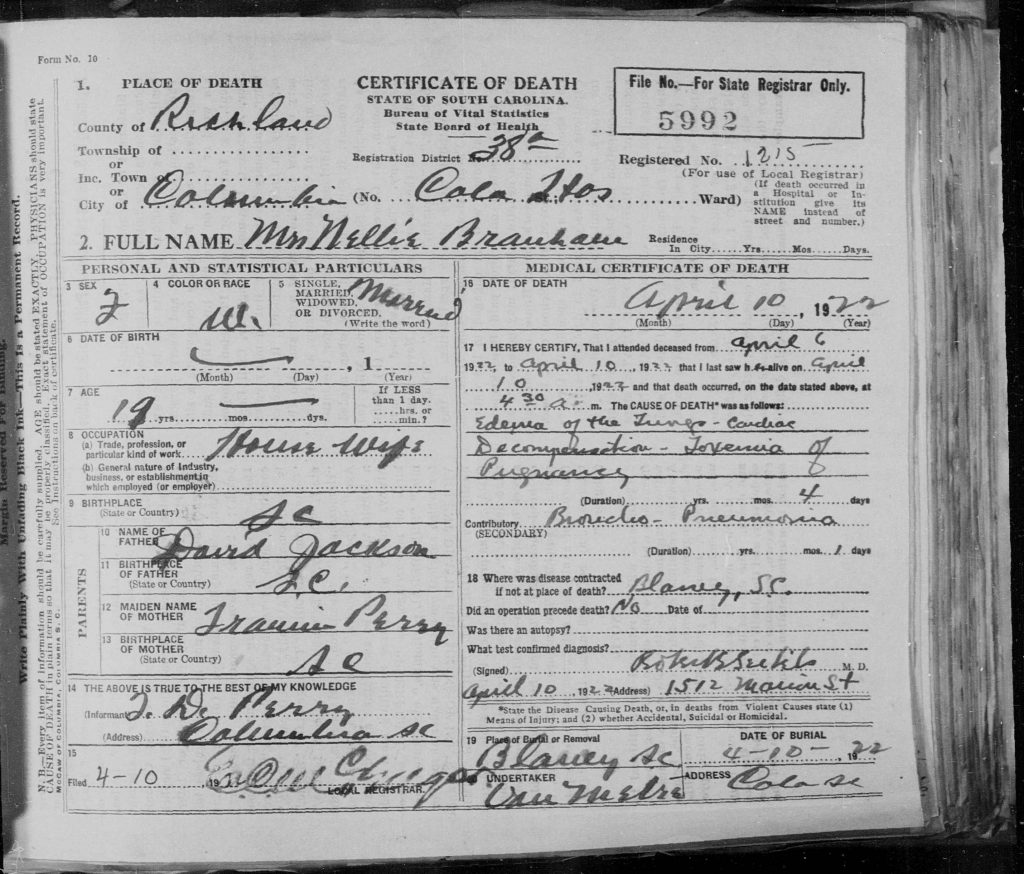 Form No. 10
1. PLACE OF DEATH
County of Richland
Township of
or
Inc. Town of
or
City of Columbia (No. Cola Hos Ward)
CERTIFICATE OF DEATH
STATE OF SOUTH CAROLINA.
Bureau of Vital Statistics
State Board of Health
Registration District No. 38a
File No.—For State Registrar Only.
5992
Registered No. 1215
(For use of Local Registrar)
(If death occurred in
a Hospital or In-
stitution give its
NAME instead of
street and number.)
2. FULL NAME Mrs Nellie Branham
Residence
In City Yrs. Mos. Days.
PERSONAL AND STATISTICAL PARTICULARS
3 SEX
F
4 COLOR OR RACE
W.
5 SINGLE,
MARRIED,
WIDOWED,
OR DIVORCED.
(Write the word)
Married
6 DATE OF BIRTH
, 1
(Month) (Day) (Year)
7 AGE
19 yrs. mos. dys.
If LESS
than 1 day.
hrs. or
min.?
8 OCCUPATION
(a) Trade, profession, or
particular kind of work House Wife
(b) General nature of Industry,
business, or establishment in
which employed (or employer)
9 BIRTHPLACE
(State or Country) SC
PARENTS
10 NAME OF
FATHER David Jackson
11 BIRTHPLACE
OF FATHER
(State or Country) S.C.
12 MAIDEN NAME
OF MOTHER Perry
13 BIRTHPLACE
OF MOTHER
(State or Country) SC
14 THE ABOVE IS TRUE TO THE BEST OF MY KNOWLEDGE
(Informant) J. D. Perry
(Address) Columbia SC
15
Filed 4-10 19
LOCAL REGISTRAR.
MEDICAL CERTIFICATE OF DEATH
16 DATE OF DEATH
April 10, 1922
(Month) (Day) (Year)
17 I HEREBY CERTIFY, That I attended deceased from April 6
1922, to April 10, 1922 that I last saw her alive on April
10, 1922 and that death occurred, on the date stated above, at
4 30 a. m. The CAUSE OF DEATH* was as follows:
Edema of the Lungs - Cardiac
Decompensation - Toxemia of
Pregnancy
(Duration) yrs. mos. 4 days
Contributory Broncho-Pneumonia
(SECONDARY)
(Duration) yrs. mos. 1 days
18 Where was disease contracted
if not at place of death? Blaney, S.C.
Did an operation precede death? No Date of
Was there an autopsy?
What test confirmed diagnosis?
(Signed) M. D.
April 10, 1922 (Address) 1512 Marion St
*State the Disease Causing Death, or, in deaths from Violent Causes state (1)
Means of Injury; and (2) whether Accidental, Suicidal or Homicidal.
19 Place of Burial or Removal
Blaney SC
DATE OF BURIAL
4-10-, 1922
UNDERTAKER
Van Metre
ADDRESS
Cola SC
Margin Reserved For Binding.
Write Plainly With Unfading Black Ink—This Is a Permanent Record.
N. B.—Every item of information should be carefully supplied. AGE should be stated EXACTLY. PHYSICIANS should state
CAUSE OF DEATH in plain terms so that it may be properly classified. Exact statement of OCCUPATION is very important.
See Instructions on back of certificate.
McCAW OF COLUMBIA, COLUMBIA S. C.